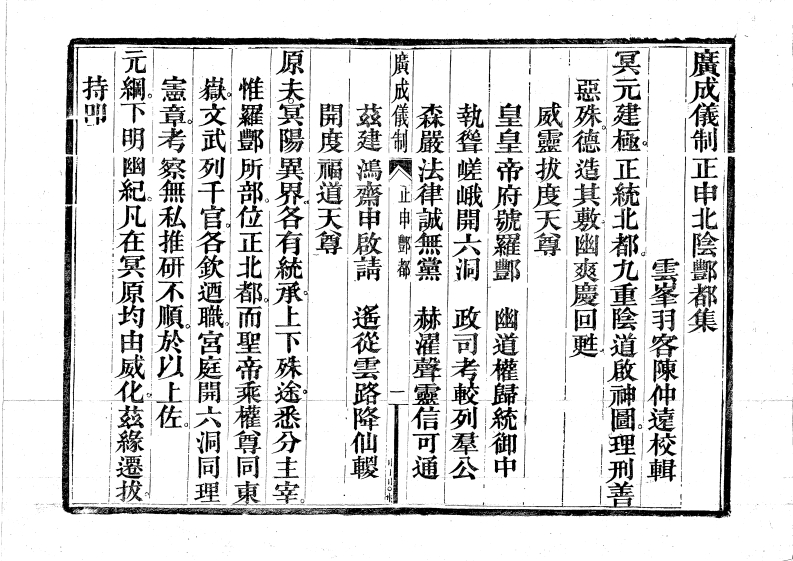 廣成儀制正申北陰酆都集
雲峯羽客陳仲遠校輯
冥元建極。正統北都。九重陰道啟神圖。理刑善
惡殊。德造其敷。幽爽慶回甦
威靈拔度天尊
皇皇帝府號羅酆　幽道權歸統御中
執聳嵯峨開六洞　政司考較列羣公
森嚴法律誠無黨　赫濯聲靈信可通
茲建鴻齋申啟請　遙從雲路降仙輗
開度福道天尊
廣成儀制　正申酆都　一
原夫。冥陽異界。各有統承。上下殊途。悉分主宰。
惟羅酆所部。位正北都。而聖帝乘權。尊同東
嶽。文武列千官。各欽迺職。宮庭開六洞。同理
憲章。考察無私。推研不順。於以上佐
元綱。下明幽紀。凡在冥原。均由威化。茲緣遷拔。
持卽